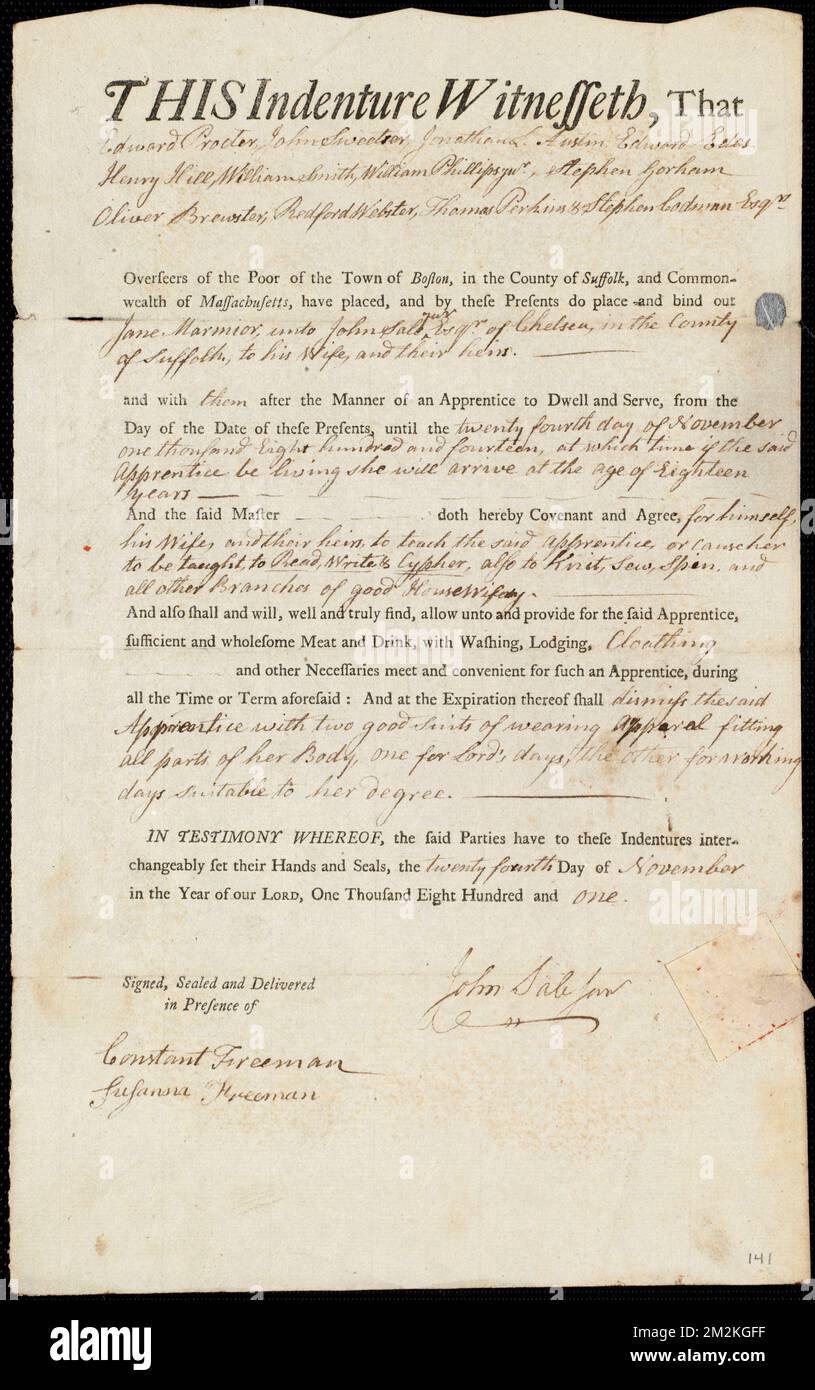 THIS Indenture Witneſſeth, That
Edward Procter, John Sweetser, Jonathan L. Austin, Edward Edes
Henry Hill, William Smith, William Phillips junr., Stephen Gorham
Oliver Brewster, Redford Webster, Thomas Perkins & Stephen Codman Esqrs
Overſeers of the Poor of the Town of Boſton, in the County of Suffolk, and Common-
wealth of Maſſachuſetts, have placed, and by theſe Preſents do place and bind out
Jane Marmior, unto John Sale junr Esqr. of Chelsea, in the County
of Suffolk, to his Wife, and their heirs.
and with them after the Manner of an Apprentice to Dwell and Serve, from the
Day of the Date of theſe Preſents, until the twenty fourth day of November
one thousand Eight hundred and fourteen, at which time if the said
Apprentice be living she will arrive at the age of Eighteen
years
And the ſaid Maſter doth hereby Covenant and Agree, for himself,
his Wife, and their heirs, to teach the said Apprentice, or cause her
to be taught, to Read, Write & Cypher, also to Knit, Sew, Spin, and
all other Branches of good HouseWifery.
And alſo ſhall and will, well and truly find, allow unto and provide for the ſaid Apprentice,
ſufficient and wholeſome Meat and Drink, with Waſhing, Lodging, Cloathing
and other Neceſſaries meet and convenient for ſuch an Apprentice, during
all the Time or Term aforeſaid : And at the Expiration thereof ſhall dismiss the said
Apprentice with two good suits of wearing Apparel fitting
all parts of her Body, one for Lord's days, the other for working
days suitable to her degree.
IN TESTIMONY WHEREOF, the ſaid Parties have to theſe Indentures inter-
changeably ſet their Hands and Seals, the twenty fourth Day of November
in the Year of our LORD, One Thouſand Eight Hundred and one.
Signed, Sealed and Delivered
in Preſence of
John Sale Junr
Constant Freeman
Susanna Freeman
141
alamy
Image ID: 2M2KGFF
www.alamy.com